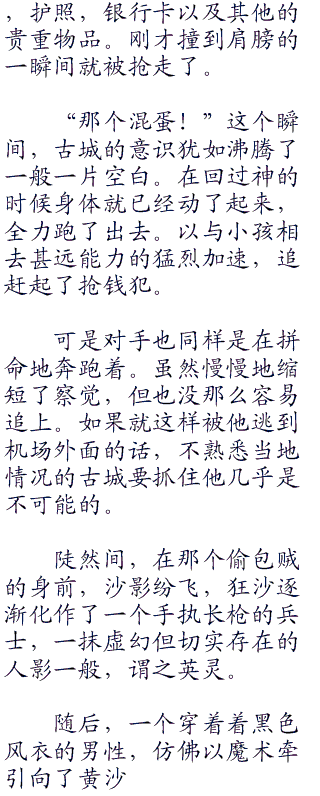 ，护照，银行卡以及其他的
贵重物品。刚才撞到肩膀的
一瞬间就被抢走了。
“那个混蛋！”这个瞬
间，古城的意识犹如沸腾了
一般一片空白。在回过神的
时候身体就已经动了起来，
全力跑了出去。以与小孩相
去甚远能力的猛烈加速，追
赶起了抢钱犯。
可是对手也同样是在拼
命地奔跑着。虽然慢慢地缩
短了察觉，但也没那么容易
追上。如果就这样被他逃到
机场外面的话，不熟悉当地
情况的古城要抓住他几乎是
不可能的。
陡然间，在那个偷包贼
的身前，沙影纷飞，狂沙逐
渐化作了一个手执长枪的兵
士，一抹虚幻但切实存在的
人影一般，谓之英灵。
随后，一个穿着着黑色
风衣的男性，仿佛以魔术牵
引向了黄沙